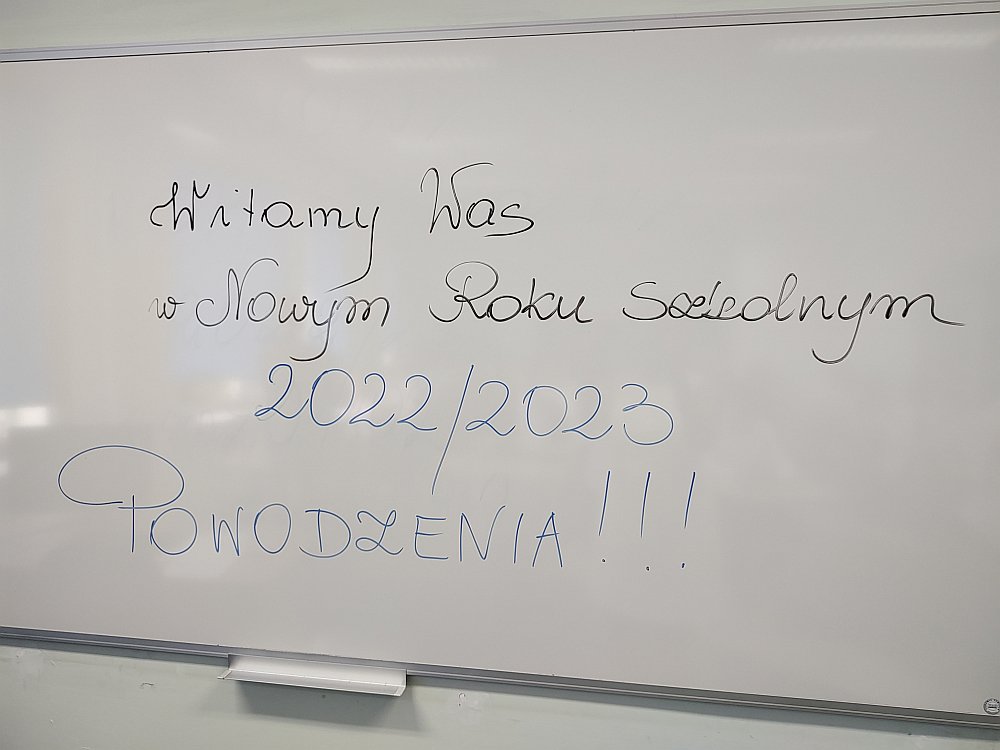 Witamy Was
w Nowym Roku Szkolnym
2022/2023
POWODZENIA!!!